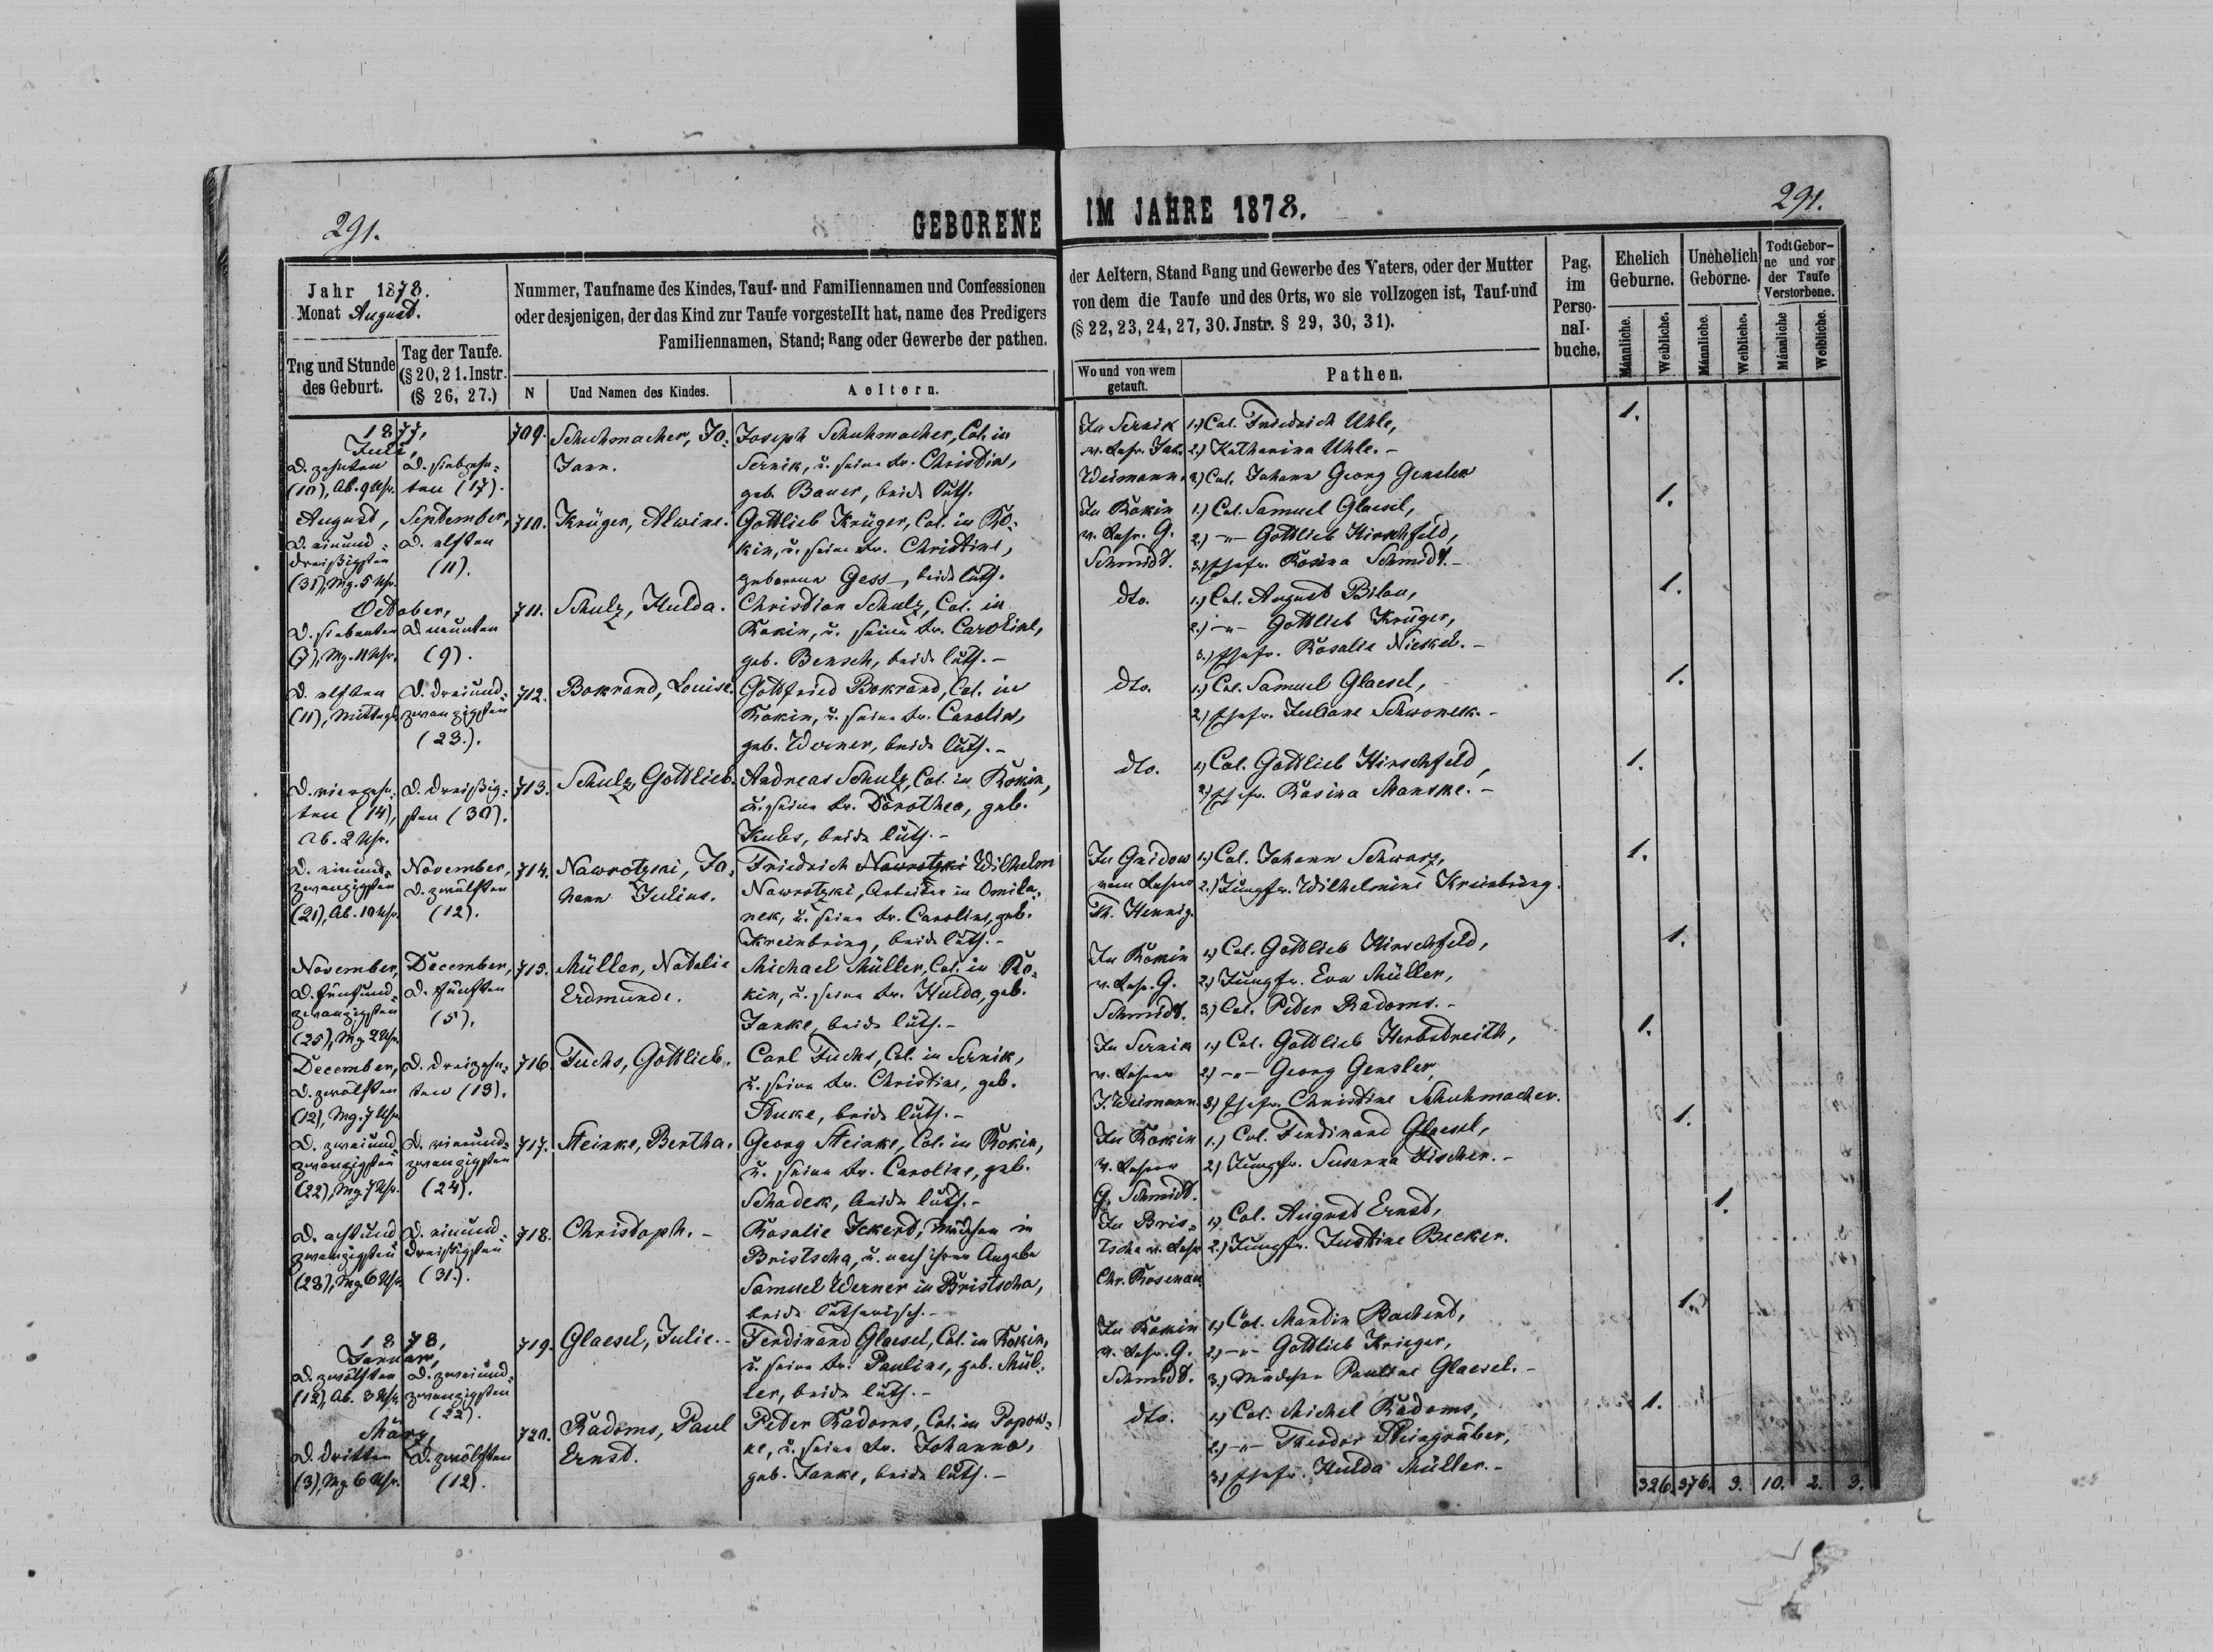 291.
GEBORENE
IM JAHRE 1878.
291.
Jahr 1878.
Monat August.
Tag und Stunde des Geburt.
Tag der Taufe.
(§ 20, 21. Instr.
(§ 26, 27.)
Nummer, Taufname des Kindes, Tauf- und Familiennamen und Confessionen
oder desjenigen, der das Kind zur Taufe vorgestellt hat, name des Predigers
Familiennamen, Stand; Rang oder Gewerbe der pathen.
N
Und Namen des Kindes.
Aeltern.
der Aeltern, Stand Rang und Gewerbe des Vaters, oder der Mutter
von dem die Taufe und des Orts, wo sie vollzogen ist, Tauf-und
(§ 22, 23, 24, 27, 30. Jnstr. § 29, 30, 31).
Wo und von wem
getauft.
Pathen.
Pag.
im
Perso-
nal-
buche.
Ehelich
Geburne.
Unehelich
Geborne.
Todt Gebor-
ne und vor
der Taufe
Verstorbene.
Männliche.
Weibliche.
Männliche.
Weibliche.
Männliche
Weibliche.
1877,
Juli,
D. zehnten
(10), Ab. 9 Uhr.
D. siebzehn-
ten (17).
709.
Schuhmacher, Jo-
hann.
Joseph Schuhmacher, Col. in
Sernik, u. seine Fr. Christin,
geb. Bauer, beide luth.
In Sernik
v. Lehr. Jak.
Weimann.
1.) Col. Friedrich Uhle,
2.) Katharina Uhle. -
3.) Col. Johann Georg Gensler
1.
August,
D. einund-
dreißigsten
(31), Mg. 5 Uhr.
September,
D. elften
(11).
710.
Krüger, Alwine.
Gottlieb Krüger, Col. in Ko-
kin, u. seine Fr. Christine,
geborene Gess, beide luth.
In Kokin
v. Lehr. G.
Schmidt.
1.) Col. Samuel Glaesel,
2.) -"- Gottlieb Hirschfeld,
3.) Ehefr. Rosina Schmidt. -
1.
October,
D. siebenten
(7), Mg. 11 Uhr.
D. neunten
(9).
711.
Schulz, Hulda.
Christian Schulz, Col. in
Kokin, u. seine Fr. Caroline,
geb. Bensch, beide luth. -
dto.
1.) Col. August Bilau,
2.) -"- Gottlieb Krüger,
3.) Ehefr. Rosalie Nickel. -
1.
D. elften
(11), Mittags
D. dreiund-
zwanzigsten
(23.).
712.
Bokrand, Louise.
Gottfried Bokrand, Col. in
Kokin, u. seine Fr. Carolin,
geb. Werner, beide luth. -
dto.
1.) Col. Samuel Glaesel,
2.) Ehefr. Juliane Schwonek. -
1.
D. vierzehn-
ten (14),
Ab. 2 Uhr.
D. dreißig-
sten (30).
713.
Schulz, Gottlieb.
Andreas Schulz, Col. in Kokin,
u. seine Fr. Dorothea, geb.
Kubs, beide luth. -
dto.
1.) Col. Gottlieb Hirschfeld,
2.) Ehefr. Rosina Manske. -
1.
D. einund-
zwanzigsten
(21), Ab. 10 Uhr.
November,
D. zwölften
(12).
714.
Nawrotzki, Jo-
hann Julius.
Friedrich Nawrotzki Wilhelm
Nawrotzki, Arbeiter in Omila-
nek, u. seine Fr. Caroline, geb.
Kreinbring, beide luth. -
In Gnidow
vom Lehrer
Th. Hennig.
1.) Col. Johann Schwarz,
2.) Jungfr. Wilhelmine Kreinbring.
1.
November,
D. fünfund-
zwanzigsten
(25), Mg. 2 Uhr.
December,
D. fünften
(5).
715.
Müller, Natalie
Erdmunde.
Michael Müller, Col. in Ko-
kin, u. seine Fr. Hulda, geb.
Janke, beide luth. -
In Kokin
v. Lehr. G.
Schmidt.
1.) Col. Gottlieb Hirschfeld,
2.) Jungfr. Eva Müller,
3.) Col. Peter Radoms. -
1.
December,
D. zwölften
(12), Mg. 7 Uhr.
D. dreizehn-
ten (13).
716.
Fuchs, Gottlieb.
Carl Fuchs, Col. in Sernik,
u. seine Fr. Christine, geb.
Stuke, beide luth. -
In Sernik
v. Lehrer
J. Weimann.
1.) Col. Gottlieb Herbstreith,
2.) -"- Georg Gensler,
3.) Ehefr. Christine Schuhmacher.
1.
D. zweiund-
zwanzigsten
(22), Mg. 7 Uhr.
D. vierund-
zwanzigsten
(24).
717.
Steinke, Bertha.
Georg Steinke, Col. in Kokin,
u. seine Fr. Caroline, geb.
Schadek, beide luth. -
In Kokin
v. Lehrer
G. Schmidt.
1.) Col. Ferdinand Glaesel,
2.) Jungfr. Susanna Fischer. -
1.
D. achtund-
zwanzigsten
(28), Mg. 6 Uhr.
D. einund-
dreißigsten
(31.).
718.
Christoph. -
Rosalie Ickert, Mädchen in
Bristscha, u. nach ihrer Angabe
Samuel Werner in Bristscha,
beide lutherisch. -
In Bris-
tscha v. Lehr.
Chr. Rosenau.
1.) Col. August Ernst,
2.) Jungfr. Justine Becker.
1.
1878,
Januar,
D. zwölften
(12), Ab. 3 Uhr.
D. zweiund-
zwanzigsten
(22).
719.
Glaesel, Julie. -
Ferdinand Glaesel, Col. in Kokin,
u. seine Fr. Pauline, geb. Mül-
ler, beide luth. -
In Kokin
v. Lehr. G.
Schmidt.
1.) Col. Martin Bachert,
2.) -"- Gottlieb Krieger,
3.) Mädchen Pauline Glaesel. -
1.
März,
D. dritten
(3), Mg. 6 Uhr.
D. zwölften
(12).
720.
Radoms, Paul
Ernst.
Peter Radoms, Col. in Popow-
ke, u. seine Fr. Johanna,
geb. Janke, beide luth. -
dto.
1.) Col. Michel Radoms,
2.) -"- Theodor Steingräber,
3.) Ehefr. Hulda Müller. -
1.
326. 376. 9. 10. 2. 3.